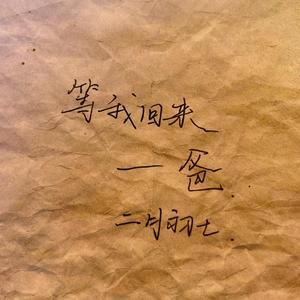 等我回来
— 爸
二月初七